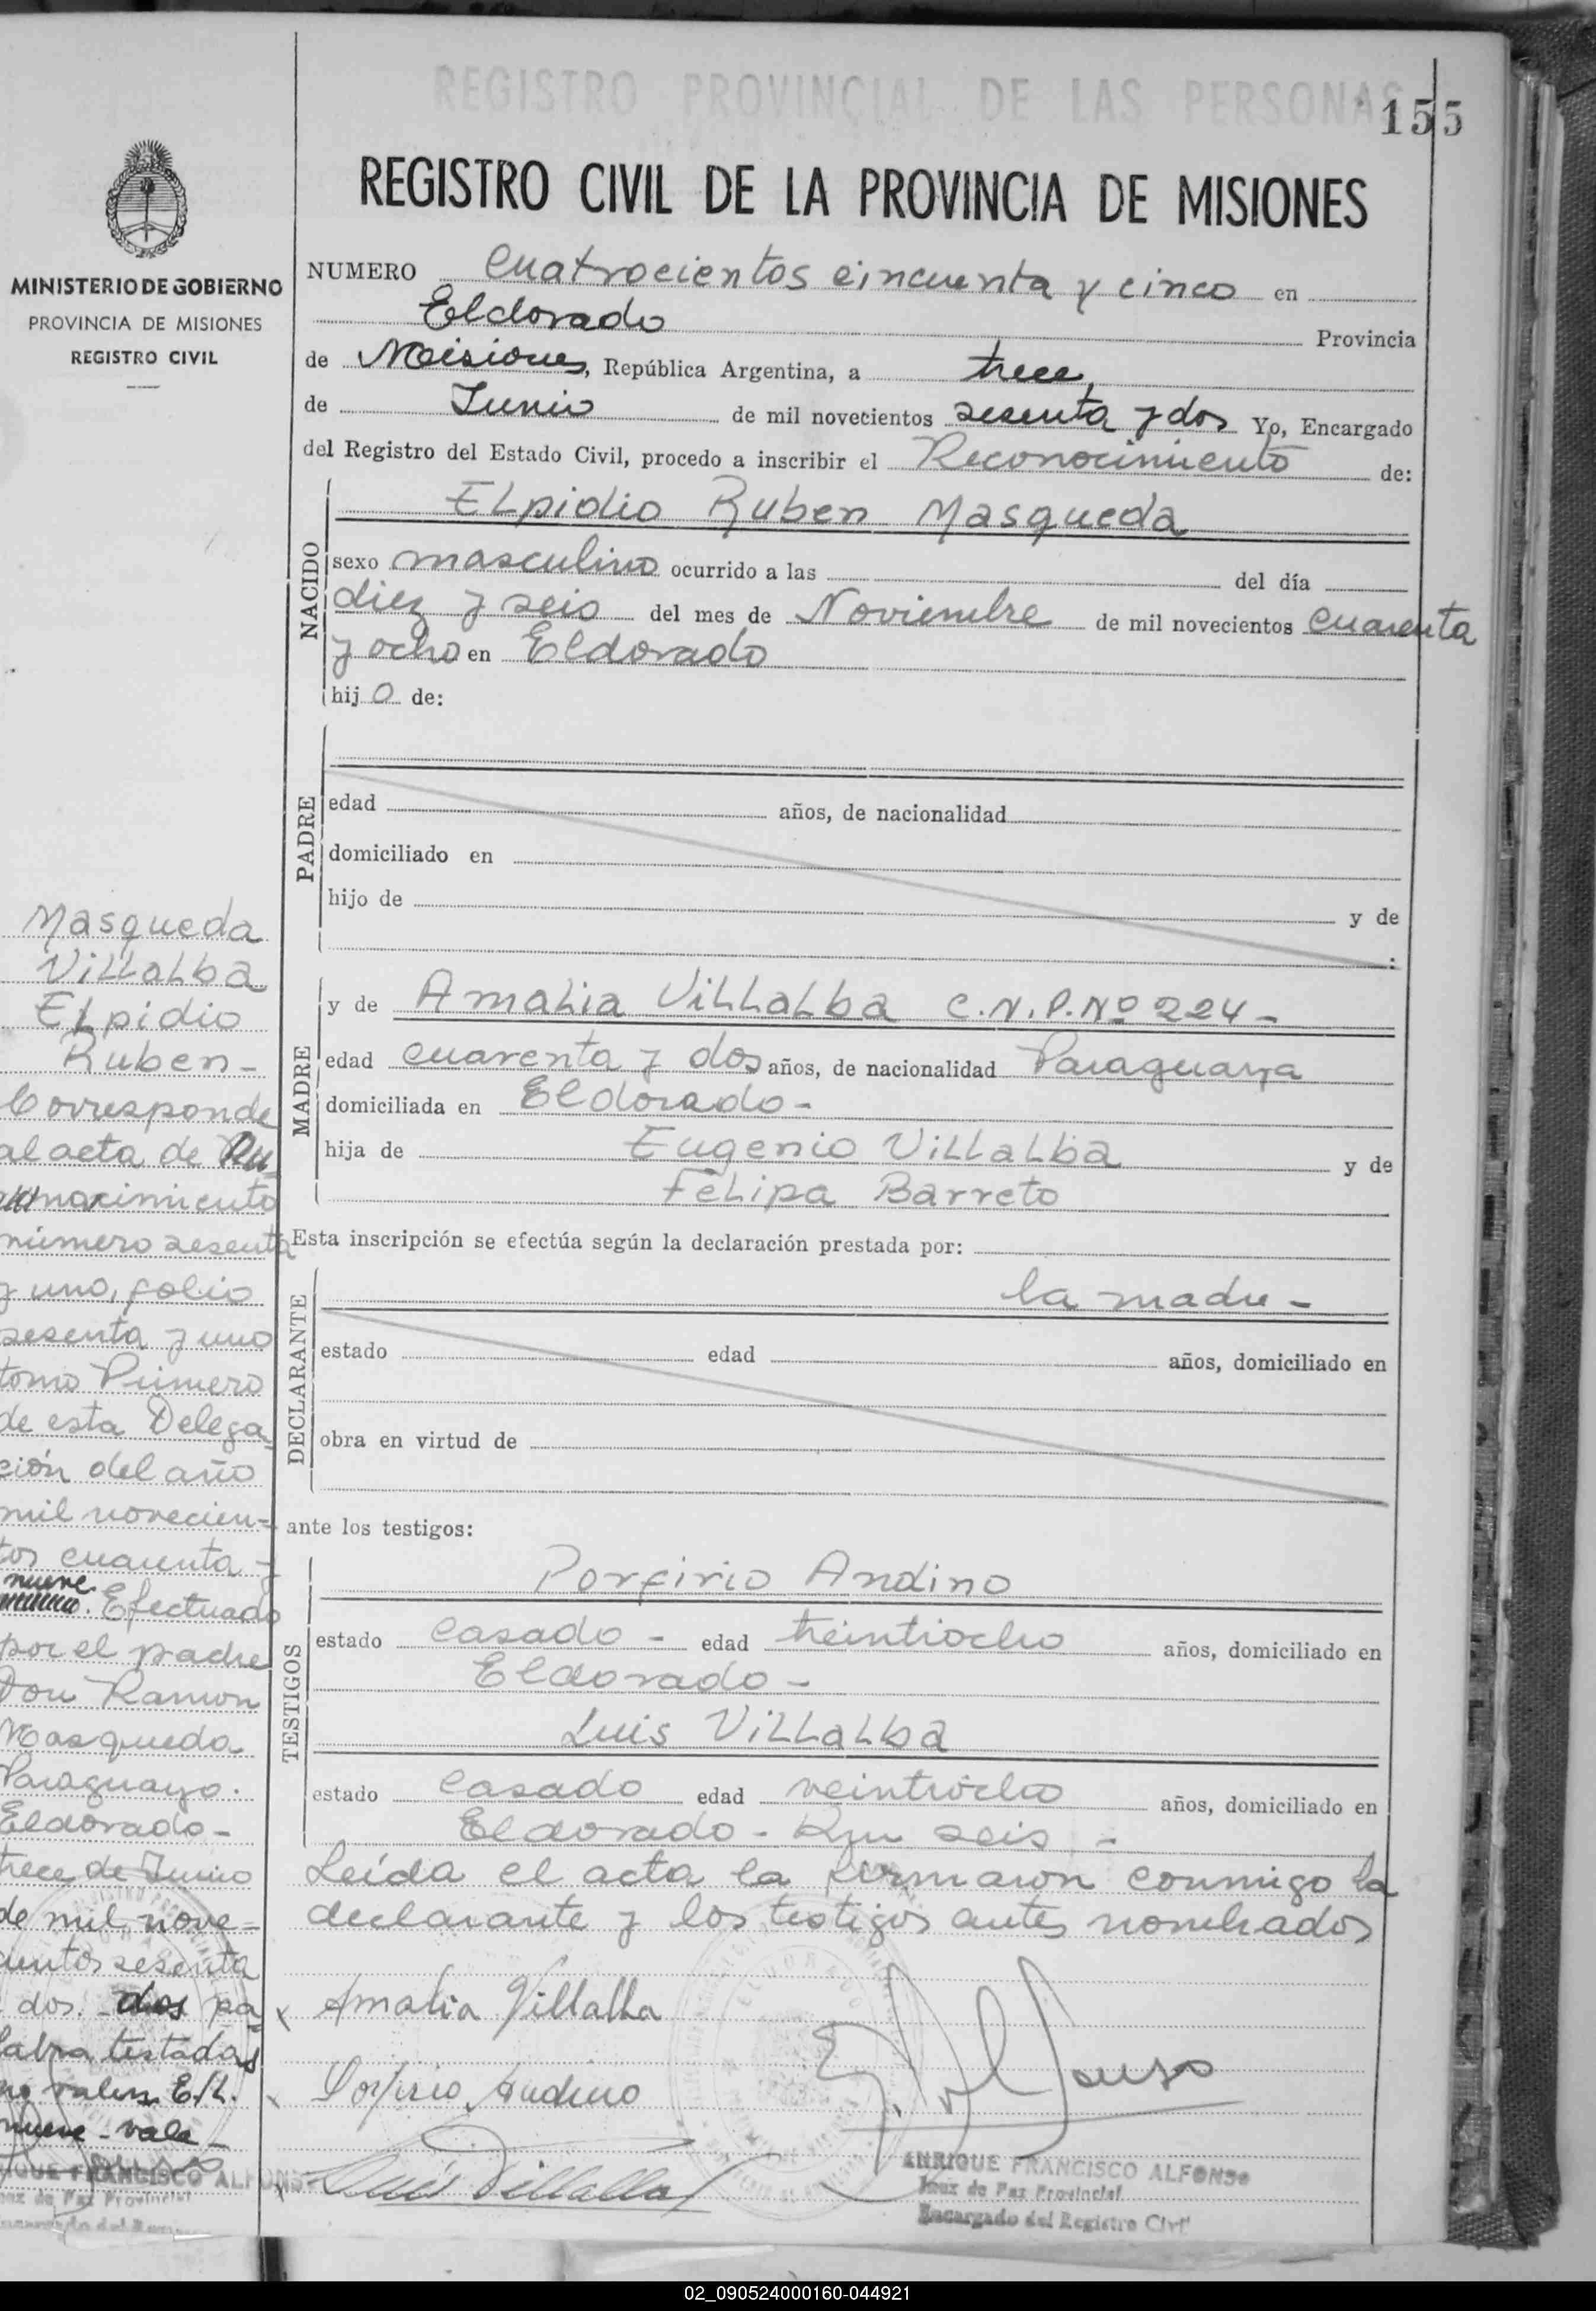 REGISTRO PROVINCIAL DE LAS PERSONAS
155
REGISTRO CIVIL DE LA PROVINCIA DE MISIONES
MINISTERIO DE GOBIERNO
PROVINCIA DE MISIONES
REGISTRO CIVIL
NUMERO Cuatrocientos cincuenta y cinco en
Eldorado Provincia
de Misiones, República Argentina, a trece,
de Junio de mil novecientos sesenta y dos Yo, Encargado
del Registro del Estado Civil, procedo a inscribir el Reconocimiento de:
NACIDO
ELpidio Ruben Masqueda
sexo masculino ocurrido a las del día
diez y seis del mes de Noviembre de mil novecientos cuarenta
y ocho en Eldorado
hij o de:
PADRE
edad años, de nacionalidad
domiciliado en
hijo de y de
:
MADRE
y de Amalia ViLLaLba C.N.P.Nº 224-
edad cuarenta y dos años, de nacionalidad Paraguaya
domiciliada en Eldorado-
hija de Eugenio ViLLaLba y de
FeLipa Barreto
Esta inscripción se efectúa según la declaración prestada por:
DECLARANTE
la madre-
estado edad años, domiciliado en
obra en virtud de
ante los testigos:
TESTIGOS
Porfirio Andino
estado casado - edad treintiocho años, domiciliado en
Eldorado-
Luis ViLLaLba
estado casado edad veintiocho años, domiciliado en
Eldorado- Km seis -
Leída el acta la firmaron conmigo la
declarante y los testigos antes nombrados
Amalia Villalba
Porfirio Andino
Luis Villalba
ENRIQUE FRANCISCO ALFONSO
Juez de Paz Provincial
Encargado del Registro Civil
Masqueda
ViLLaLba
ELpidio
Ruben-
Corresponde
al acta de
nacimiento
número sesenta
y uno, folio
sesenta y uno
tomo Primero
de esta Delega
ción del año
mil novecien-
tos cuarenta y
nueve. Efectuado
por el padre
Don Ramon
Masqueda
Paraguayo.
Eldorado-
trece de Junio
de mil nove-
cientos sesenta
dos. dos pa
labra testadas
no valen E/L.
nueve-vale-
IQUE FRANCISCO ALFONSO
Juez de Paz Provincial
02_090524000160-044921